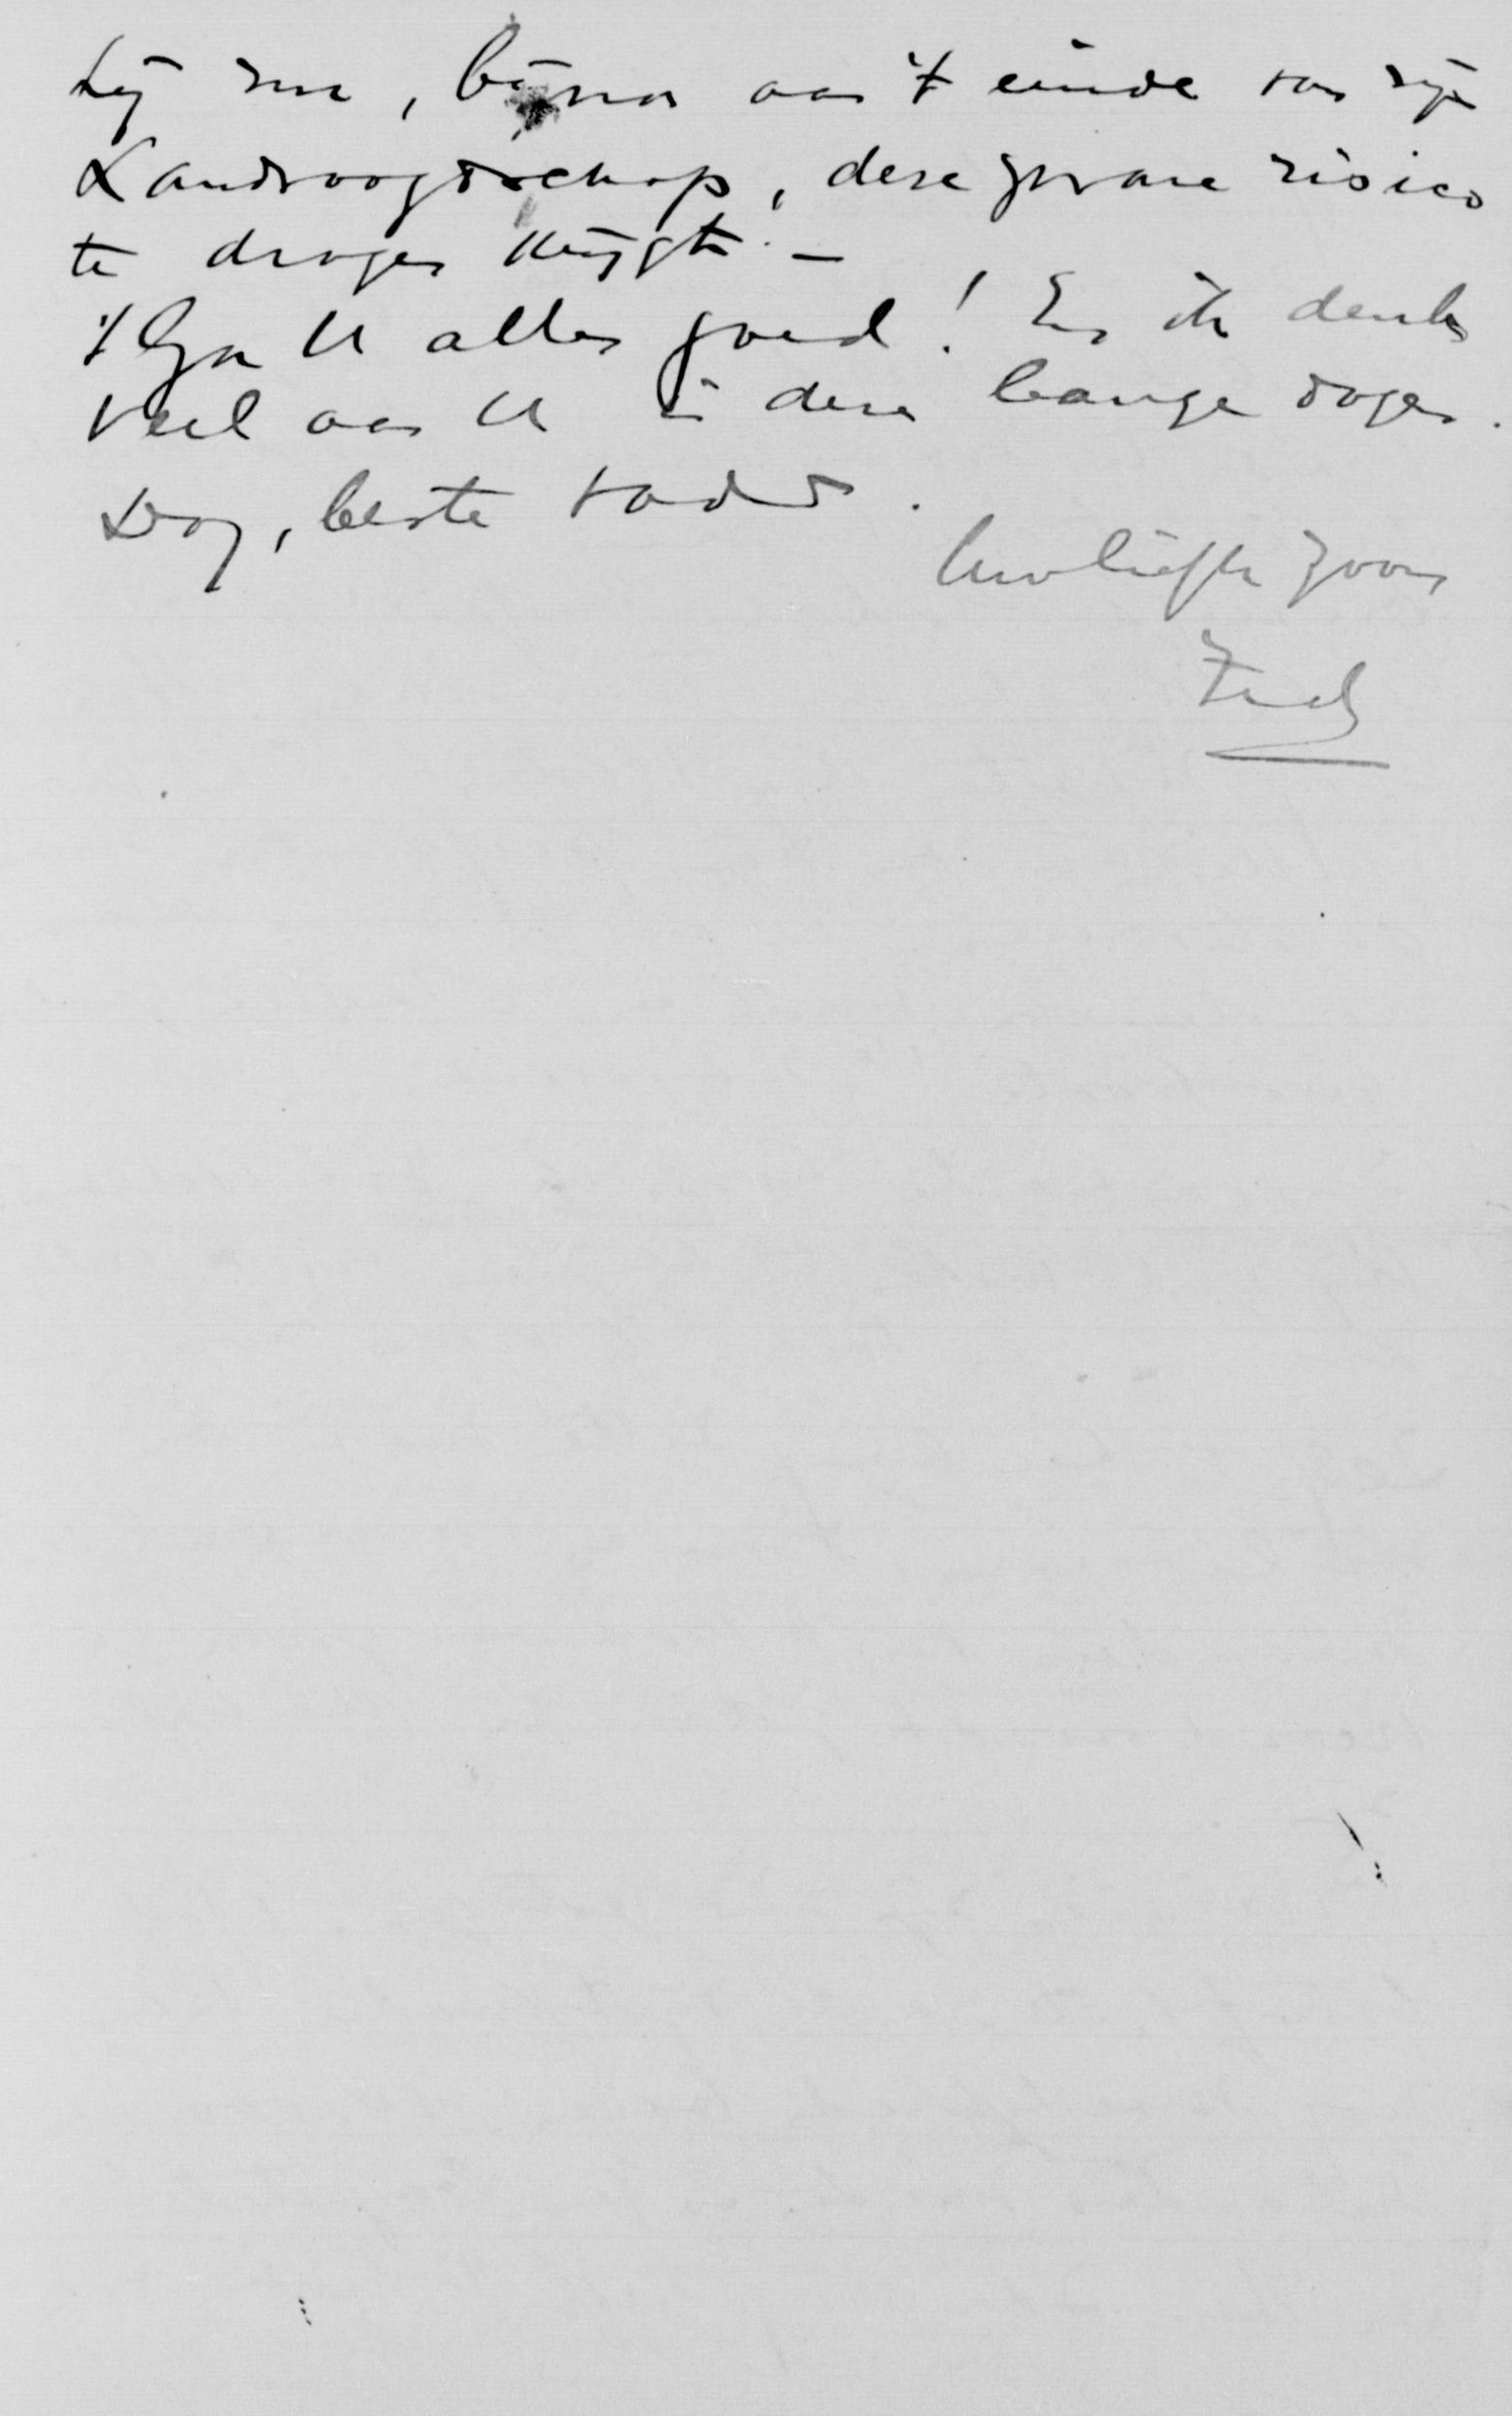 hij nu, bijna aan 't einde van zijn
Landvoogdschap, deze zware risico
te dragen krijgt. –
't Ga U alles goed! En ik denk
veel aan U in deze bange dagen.
Dag, beste vader.
Uw liefh. zoon